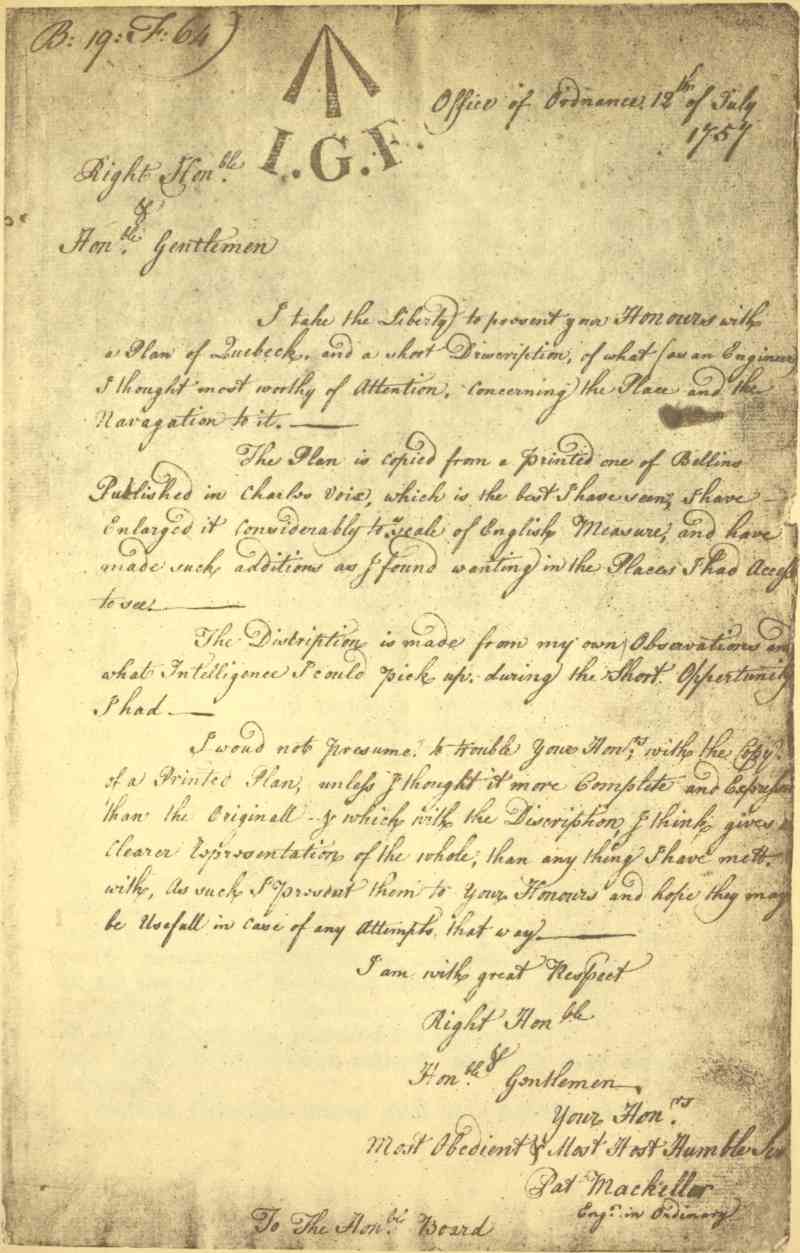 B: 19: F: 64)
I.G.F.
Office of Ordnance, 12th of July
1757
Right Honble.
&
Honble. Gentlemen
I take the Liberty to present your Honours with
a Plan of Quebeck, and a short Discription, of what (as an Engineer)
I thought most worthy of Attention, concerning the Place and the
Navagation to it. —
The Plan is copied from a printed one of Bellins
Published in Charles Voix, which is the best I have seen, I have
Enlarged it considerably to Scale of English Measure, and have
made such additions as I found wanting in the Places I had Access
to see. —
The Discription is made from my own Observations and
what Intelligence I could pick up, during the Short Oppertunity
I had —
I woud not presume, to trouble Your Honrs, with the Copy
of a Printed Plan, unless I thought it more Complete and Expressive
than the Originall & which with the Discription, I think, gives a
Clearer Representation of the whole, than any thing I have mett
with, As such I present them to Your Honours and hope they may
be Usefull in case of any Attempts that way —
I am with great Respect
Right Honble
&
Honble. Gentlemen,
Your Honrs.
Most Obedient & Most Host Humble Ser
Pat Mackellar
Engr. in Ordinary
To The Honble Board